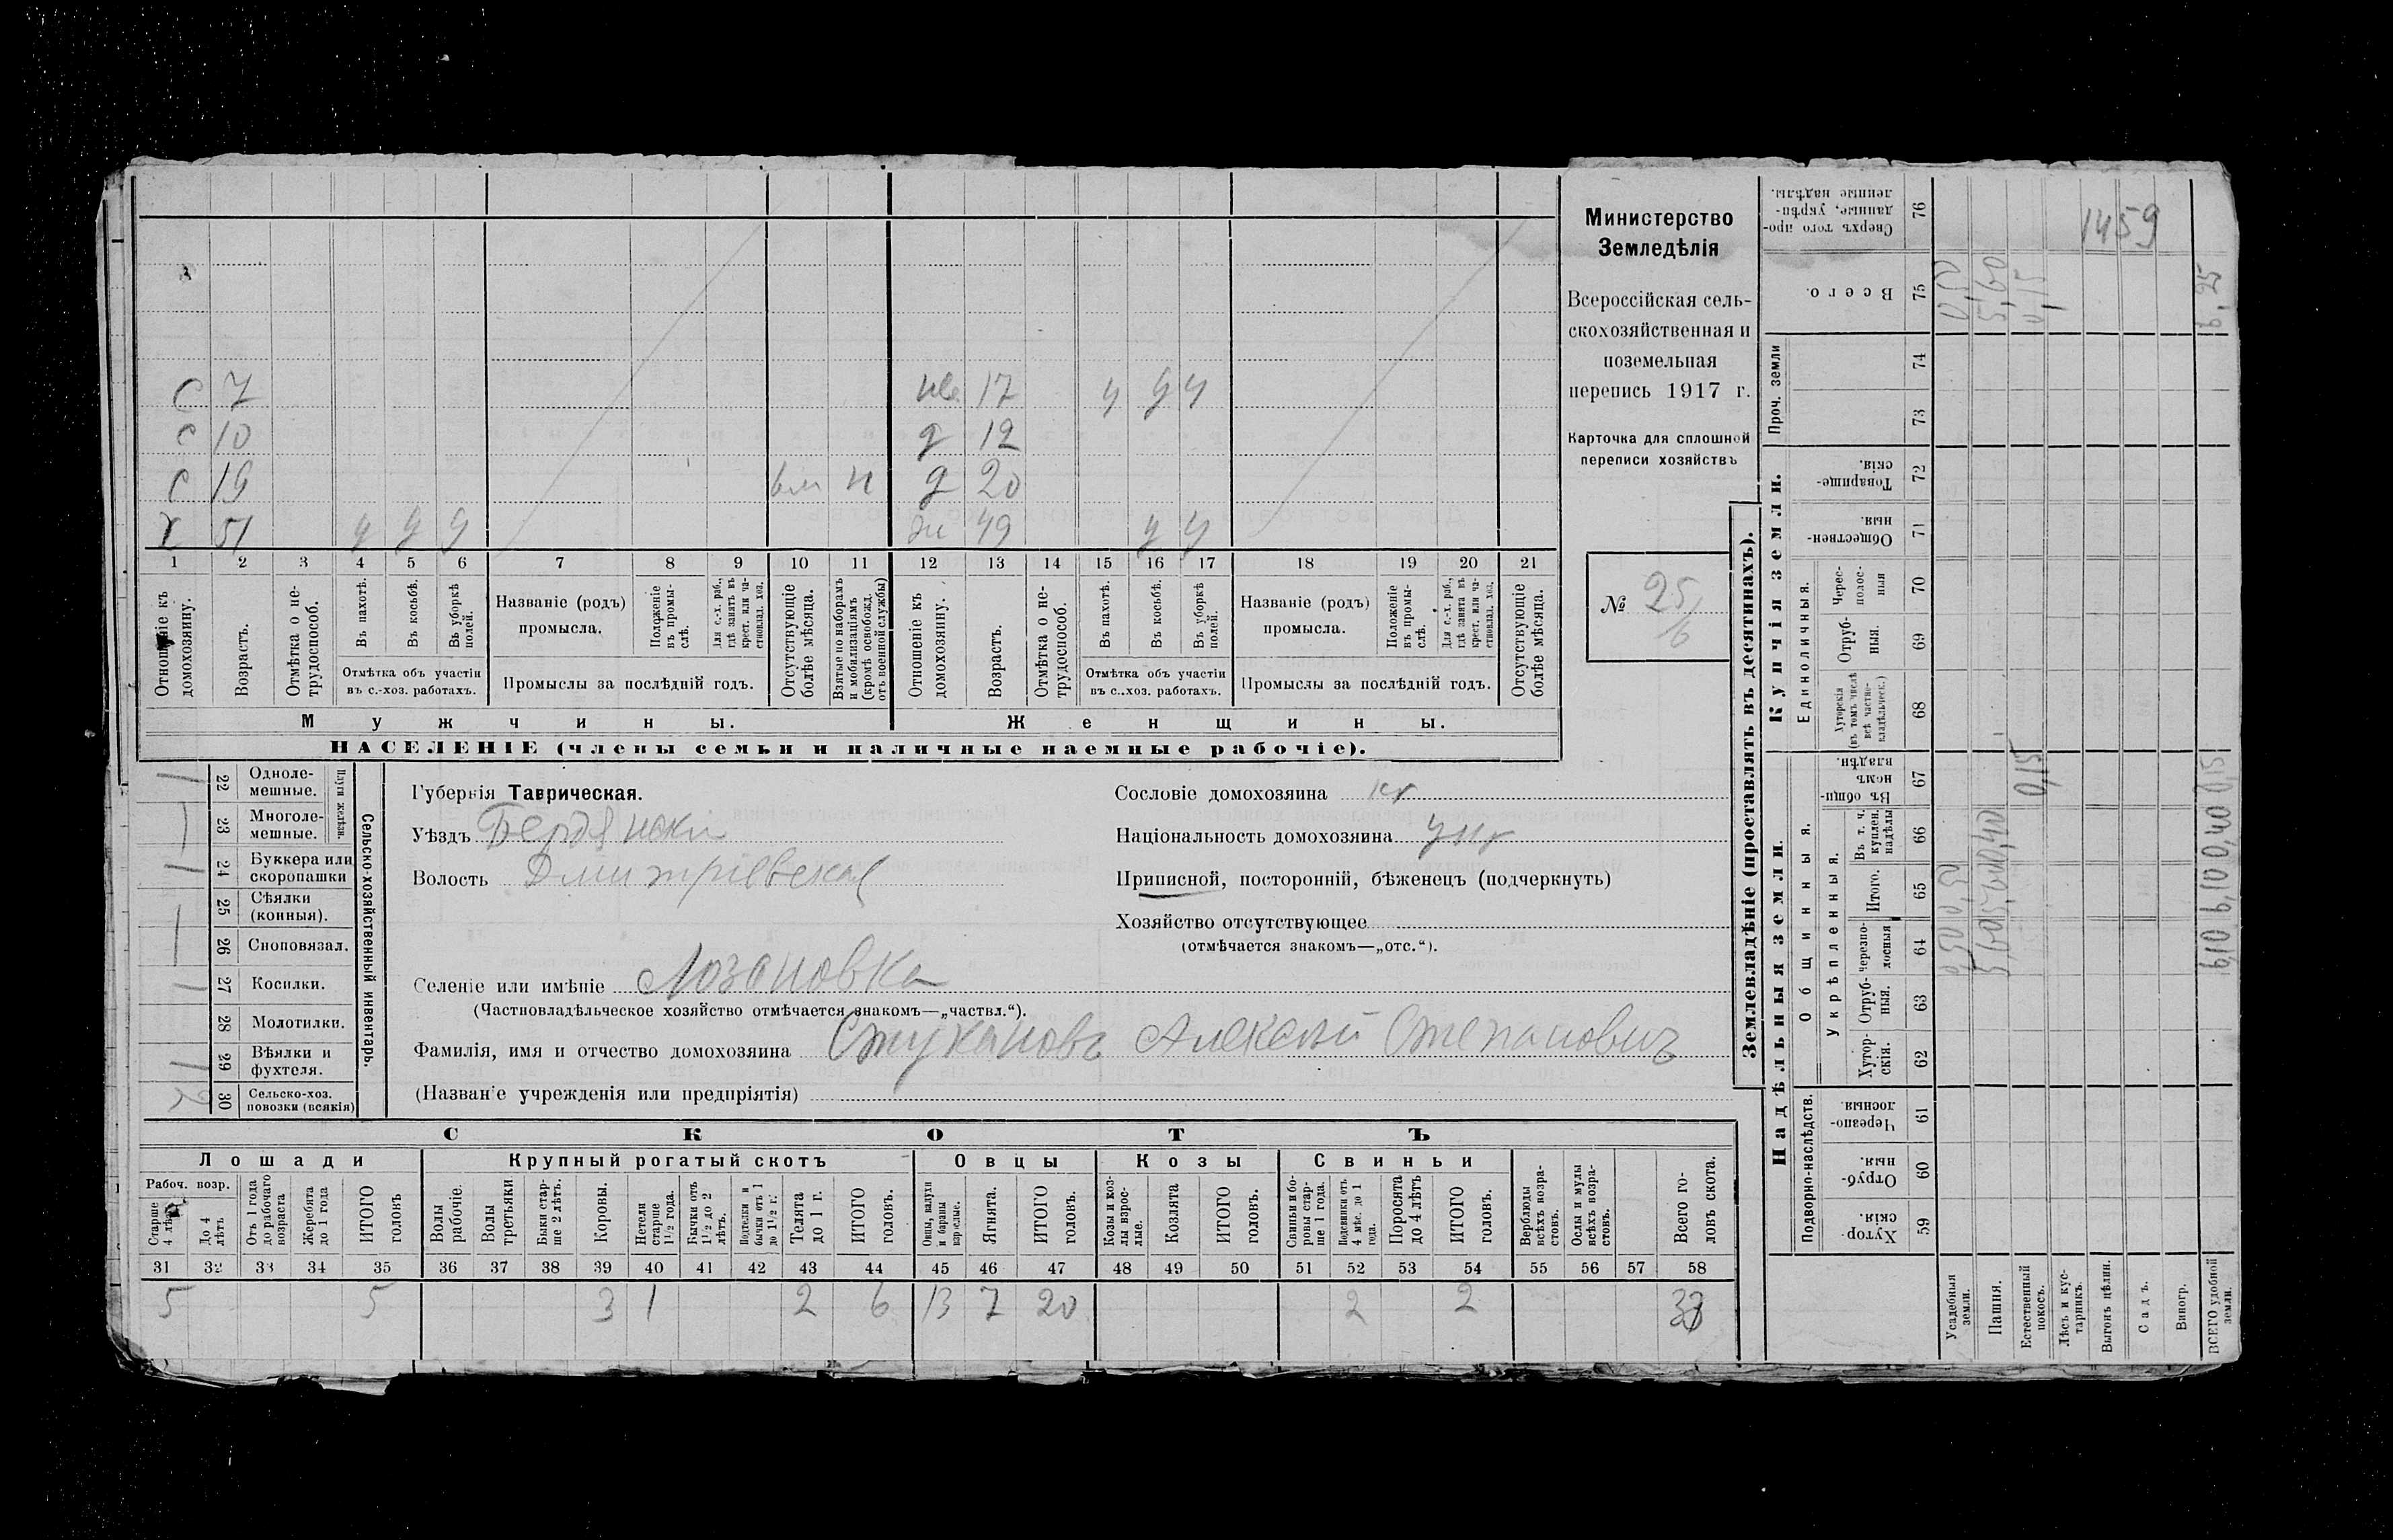 с 7 не. 17 у у у
с 10 д 12
с 19 вм н д 20
х 51 у у у ж 49 у у
1 2 3 4 5 6 7 8 9 10 11 12 13 14 15 16 17 18 19 20 21
Отношеніе къ домохозяину.
Возрастъ.
Отмѣтка о не-
трудоспособ.
Въ пахотѣ.
Въ косьбѣ.
Въ уборкѣ полей.
Отмѣтка объ участіи
въ с.-хоз. работахъ.
Названіе (родъ)
промысла.
Положеніе въ промы-
слѣ.
Для с.-х. раб., гдѣ занятъ въ крест. или ча-
стновлад. хоз.
Промыслы за послѣдній годъ.
Отсутствующіе болѣе мѣсяца.
Взятые по наборамъ и мобилизаціямъ (кромѣ освобожд. отъ военной службы)
Отношеніе къ домохозяину.
Возрастъ.
Отмѣтка о не-
трудоспособ.
Въ пахотѣ.
Въ косьбѣ.
Въ уборкѣ полей.
Отмѣтка объ участіи
въ с..хоз. работахъ.
Названіе (родъ)
промысла.
Положеніе въ промы-
слѣ.
Для с.-х. раб., гдѣ занята въ крест. или ча-
стновлад. хоз.
Промыслы за послѣдній годъ.
Отсутствующіе болѣе мѣсяца.
Мужчины. Женщины.
НАСЕЛЕНІЕ (члены семьи и наличные наемные рабочіе).
Министерство
Земледѣлія
Всероссійская сель-
скохозяйственная и
поземельная
перепись 1917 г.
Карточка для сплошной
переписи хозяйствъ
№ 25/6
Сельско-хозяйственный инвентарь.
Плуги желѣзн.
22 Одноле-
мешные. 1
23 Многоле-
мешные. 1
24 Буккера или
скоропашки 1
25 Сѣялки
(конныя). —
26 Сноповязал. —
27 Косилки. 1
28 Молотилки.
29 Вѣялки и
фухтеля. 1
30 Сельско-хоз.
повозки (всякія) 2
Губернія Таврическая.
Уѣздъ Бердянски
Волость Дмитріевская
Селеніе или имѣніе Лозановка
(Частновладѣльческое хозяйство отмѣчается знакомъ—„частвл.“).
Фамилія, имя и отчество домохозяина Стукановъ Алексѣй Степановичъ
(Названіе учрежденія или предпріятія)
Сословіе домохозяина кр
Національность домохозяина укр
Приписной, посторонній, бѣженецъ (подчеркнуть)
Хозяйство отсутствующее
(отмѣчается знакомъ—„отс.“).
СКОТЪ
Лошади Крупный рогатый скотъ Овцы Козы Свиньи
Рабоч. возр.
Старше 4 лѣтъ
До 4 лѣтъ
Отъ 1 года до рабочаго возраста
Жеребята до 1 года
ИТОГО головъ
Волы рабочіе.
Волы третьяки
Быки стар-
ше 2 лѣтъ.
Коровы.
Нетели старше 1½ года.
Бычки отъ 1½ до 2 лѣтъ.
Подтелки и бычки отъ 1 до 1½ г.
Телята до 1 г.
ИТОГО головъ.
Овцы, валухи и бараны взрослые.
Ягнята.
ИТОГО головъ.
Козы и коз-
лы взрос-
лые.
Козлята
ИТОГО головъ.
Свиньи и бо-
ровы стар-
ше 1 года.
Подсвинки отъ 4 мѣс. до 1 года.
Поросята до 4 лѣтъ
ИТОГО головъ.
Верблюды всѣхъ возра-
стовъ.
Ослы и мулы всѣхъ возра-
стовъ.
Всего го-
ловъ скота.
31 32 33 34 35 36 37 38 39 40 41 42 43 44 45 46 47 48 49 50 51 52 53 54 55 56 57 58
5 5 3 1 2 6 13 7 20 2 2 33
Землевладѣніе (проставлять въ десятинахъ).
Надѣльныя земли. Купчія земли. Проч. земли
Подворно-наслѣдств.
Общинныя.
Укрѣпленныя.
Единоличныя.
59 Хутор-
скія.
60 Отруб-
ныя.
61 Черезпо-
лосныя.
62 Хутор-
скія.
63 Отруб-
ныя.
64 Черезпо-
лосныя
65 Итого.
66 Въ т. ч. куплен. надѣлы
67 Въ общи-
номъ владѣн.
68 Хуторскія (въ томъ числѣ всѣ частно-
владѣльческ.)
69 Отруб-
ныя.
70 Черес-
полос-
ныя
71 Обществен-
ныя.
72 Товарище-
скія.
73
74
75 Всего.
76 Сверхъ того про-
данные, укрѣп-
ленные надѣлы.
Усадебныя земли. 0,50 0,50 0,50
Пашня. 5,60 5,60 0,40 5,60
Естественный покосъ. 0,15 0,15
Лѣсъ и кус-
тарникъ.
Выгонъ цѣлин.
Садъ.
Виногр.
ВСЕГО удобной земли. 6,10 6,10 0,40 0,15 6,25
1459